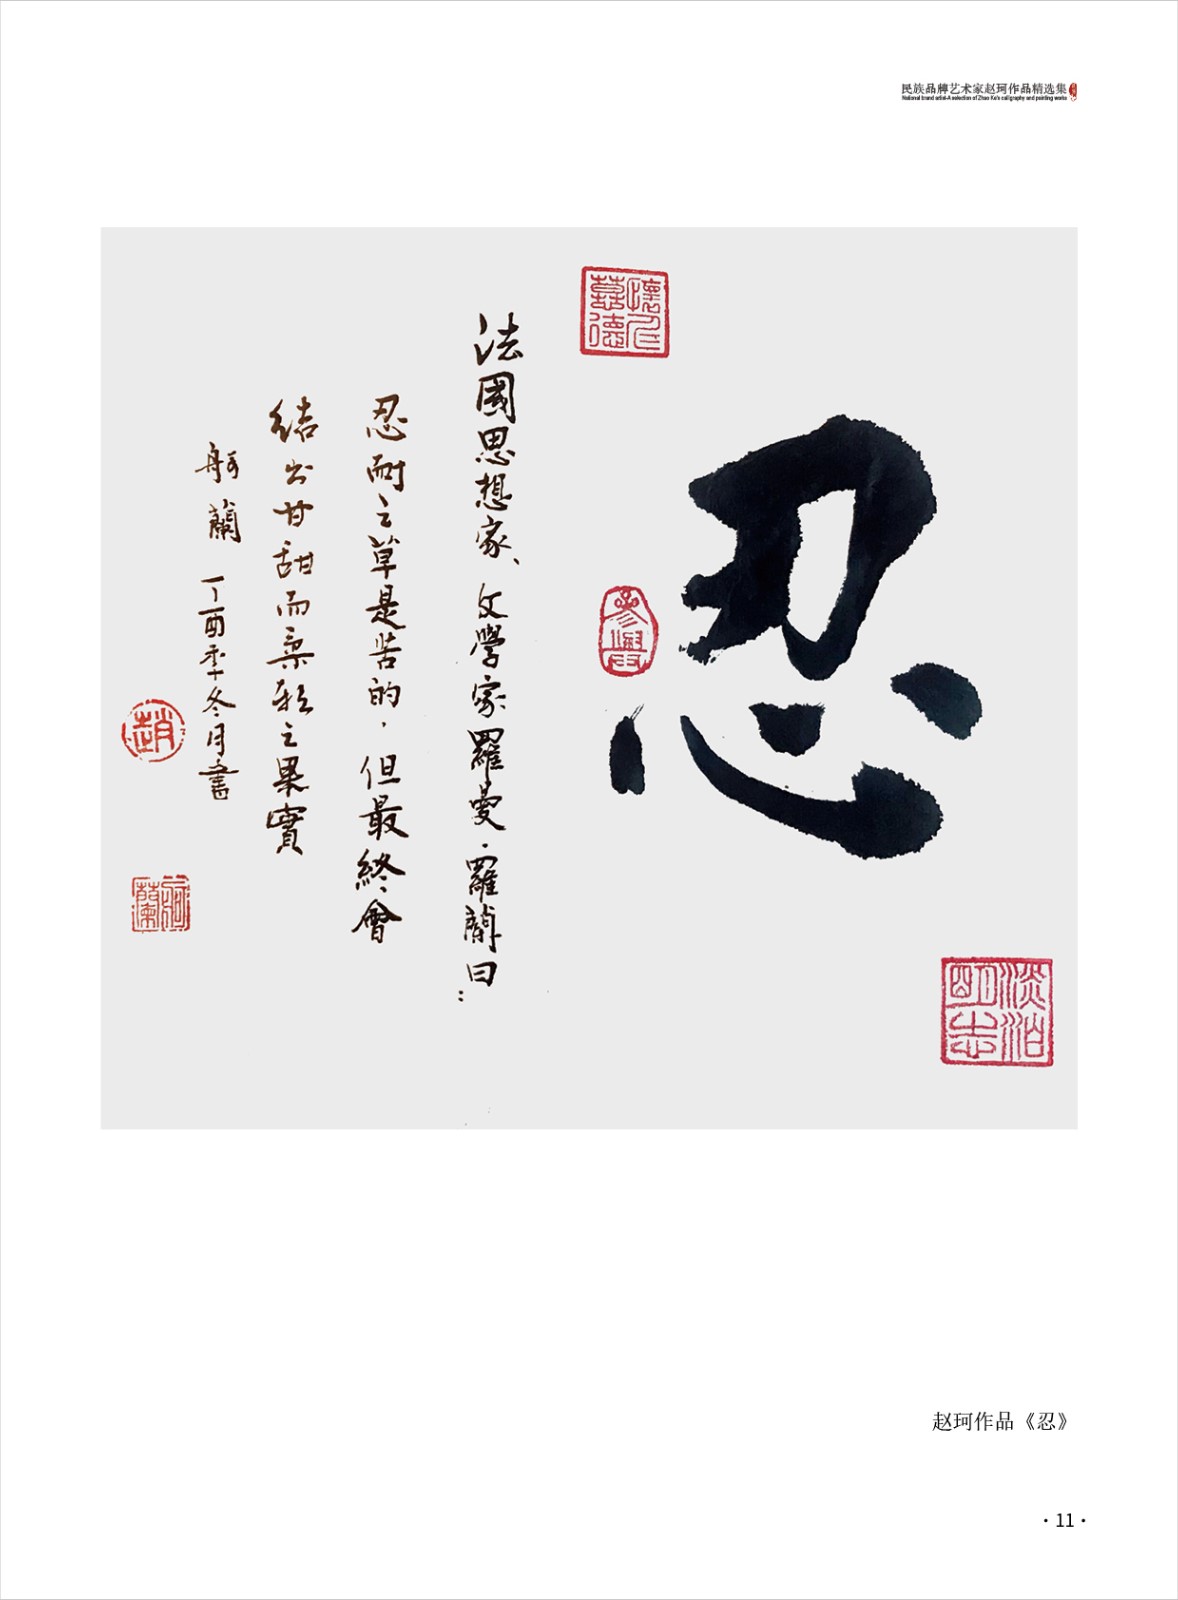 民族品牌艺术家赵珂作品精选集
National brand artist-A selection of Zhao Ke's calligraphy and painting works
懷仁慕德
忍
淡泊明志
法國思想家、文學家羅曼·羅蘭曰：
忍耐之草是苦的，但最終會
結出甘甜而柔軟之果實
舸蘭 丁酉季冬月書
趙
赵珂作品《忍》
·11·